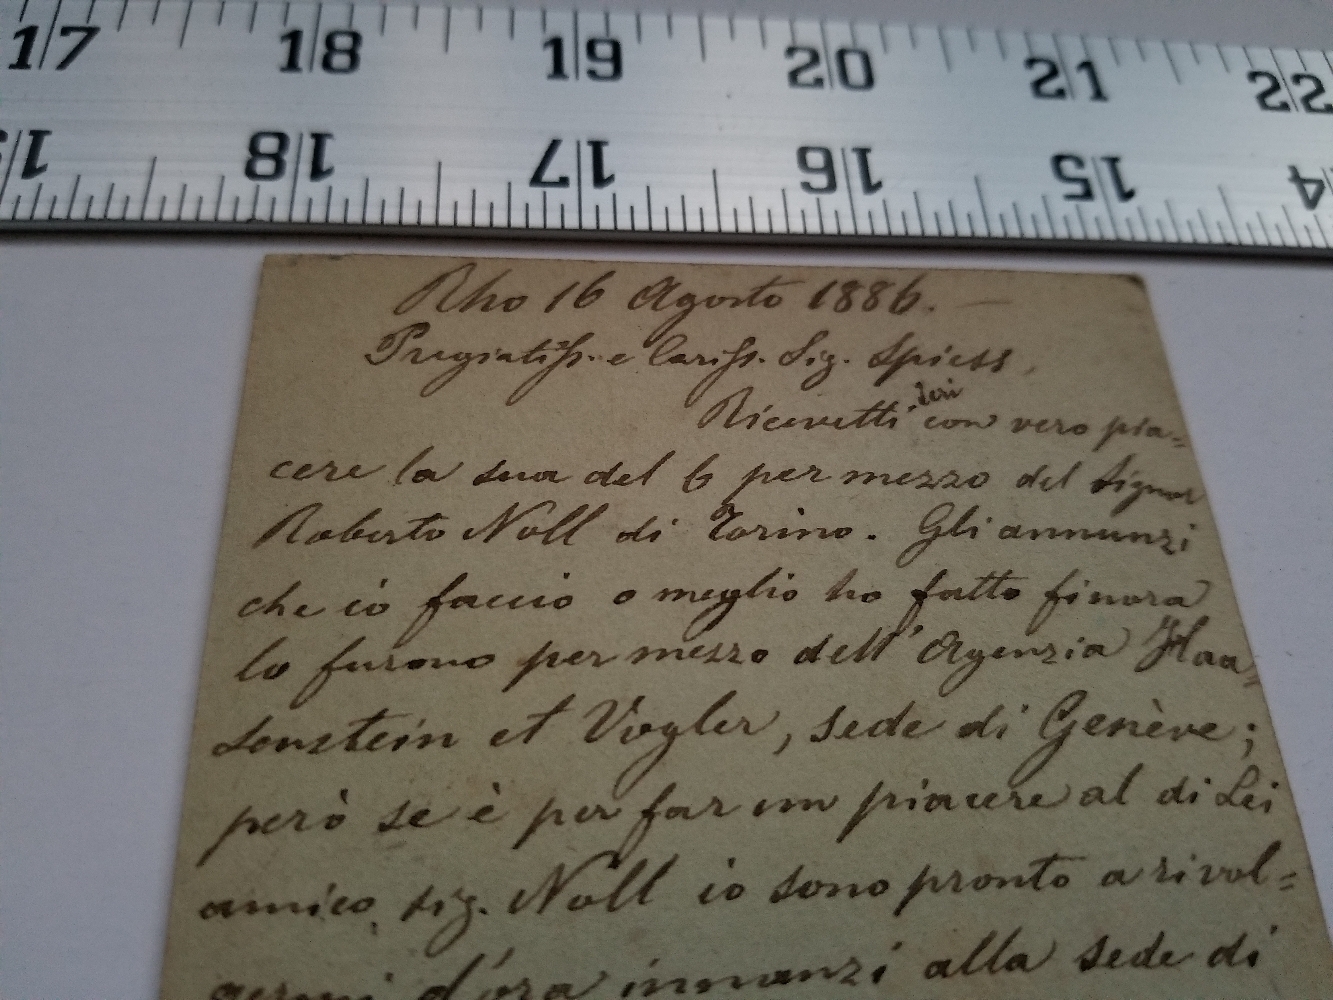 17 18 19 20 21 22
18 17 16 15 14
Rho 16 Agosto 1886. —
Pregiatiss. e Cariss. Sig. Spiess,
Ricevetti ieri con vero pia=
cere la sua del 6 per mezzo del Signor
Roberto Noll di Torino. Gli annunzi
che io faccio o meglio ho fatto finora
lo furono per mezzo dell'Agenzia Haa=
senstein et Vogler, sede di Genève;
però se è per far un piacere al di Lei
amico, sig. Noll io sono pronto a rivol=
germi d'ora innanzi alla sede di